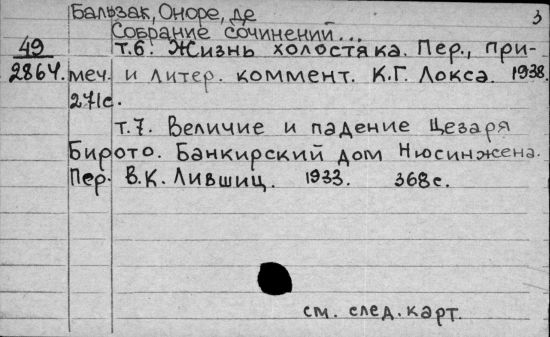 Бальзак, Оноре, де 3
Собрание сочинений...
49 т.6. Жизнь холостяка. Пер., при-
2864. меч. и литер. коммент. К.Г. Локса. 1938.
271с.
т.7. Величие и падение Цезаря
Бирото. Банкирский дом Нюсинжена.
Пер. В.К. Лившиц. 1933. 368с.
см. след. карт.